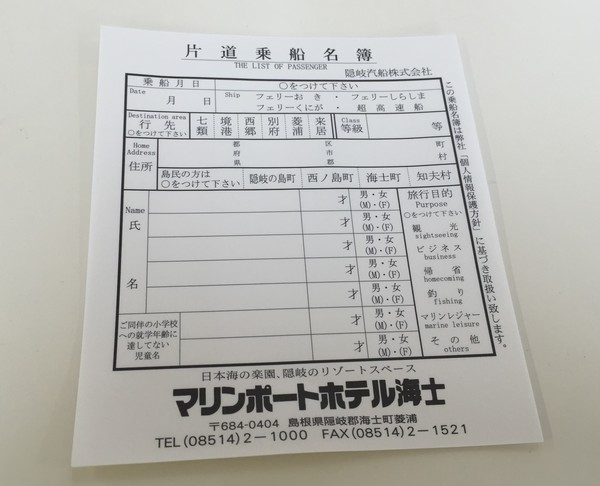 片道乗船名簿
THE LIST OF PASSENGER
隠岐汽船株式会社
乗船月日
○をつけて下さい
Date
月 日
Ship
フェリーおき ・ フェリーしらしま
フェリーくにが ・ 超高速船
Destination area
行先
○をつけて下さい
七類
境港
西郷
別府
菱浦
来居
Class
等級
等
Home Address
住所
都府県
区市郡
町村
島民の方は
○をつけて下さい
隠岐の島町
西ノ島町
海士町
知夫村
Name
氏名
才
男・女
(M)・(F)
才
男・女
(M)・(F)
才
男・女
(M)・(F)
才
男・女
(M)・(F)
才
男・女
(M)・(F)
才
男・女
(M)・(F)
ご同伴の小学校
への就学年齢に
達してない
児童名
才
男・女
(M)・(F)
旅行目的
Purpose
○をつけて下さい
観光
sightseeing
ビジネス
business
帰省
homecoming
釣り
fishing
マリンレジャー
marine leisure
その他
others
この乗船名簿は弊社「個人情報保護方針」に基づき取扱い致します。
日本海の楽園、隠岐のリゾートスペース
マリンポートホテル海士
〒684-0404 島根県隠岐郡海士町菱浦
TEL(08514)2-1000 FAX(08514)2-1521